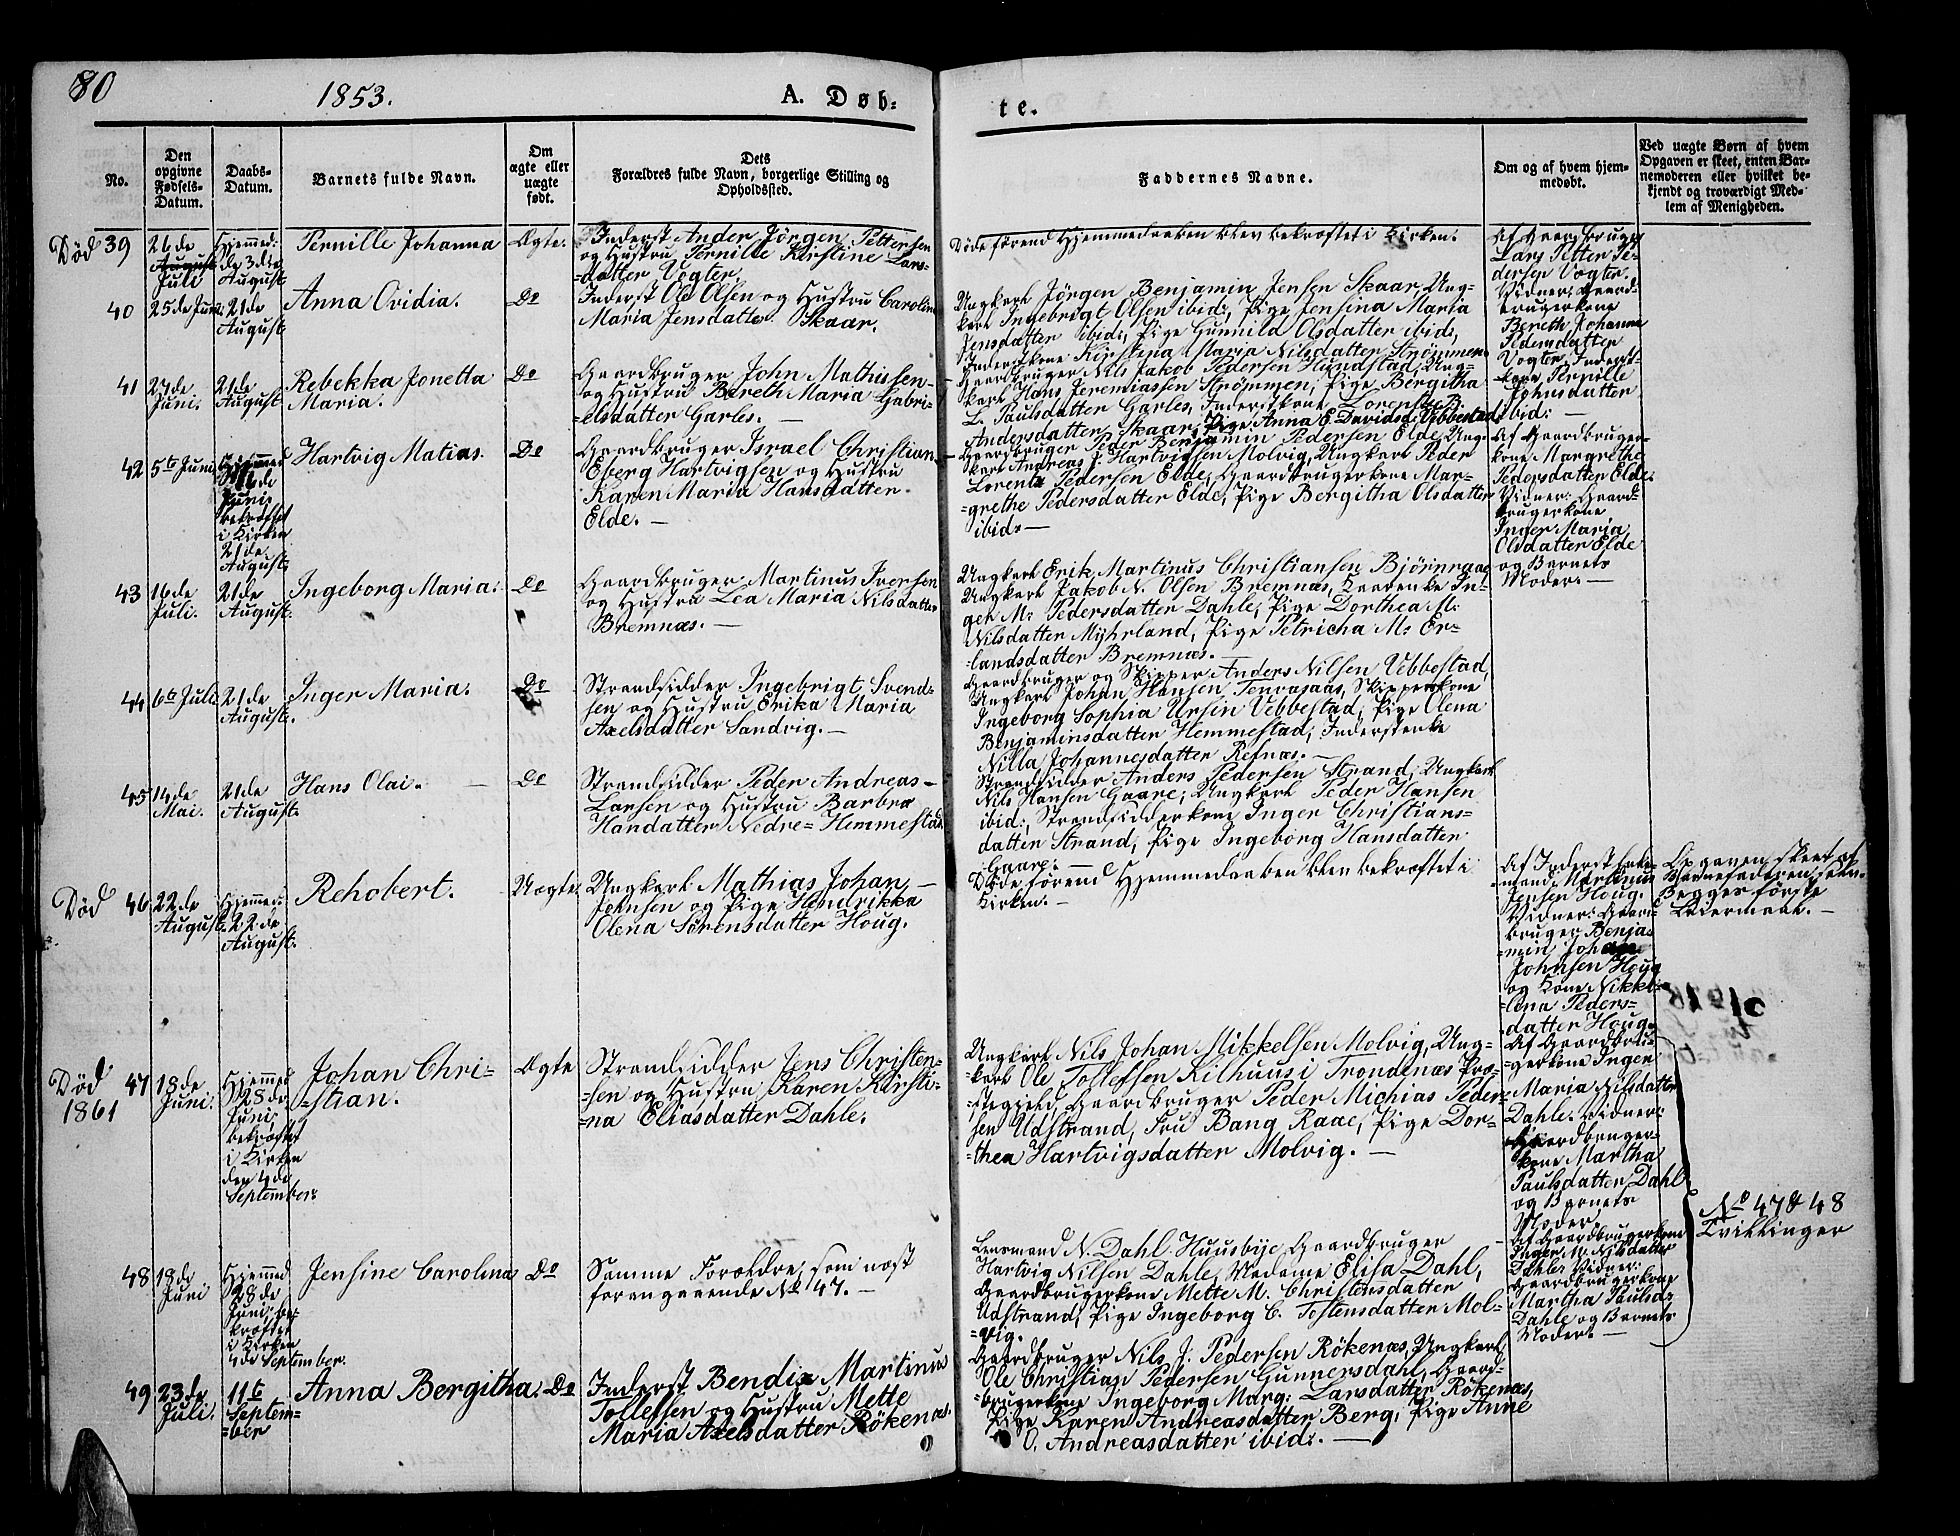 80
1853.
A. Døb=
te.
No.
Den opgivne Fødsels-Datum.
Daabs-Datum.
Barnets fulde Navn.
Om ægte eller uægte født.
Dets Forældres fulde Navn, borgerlige Stilling og Opholdssted.
Faddernes Navne.
Om og af hvem hjemmedøbt.
Ved uægte Børn af hvem Opgaven er skeet, enten Barnemoderen eller hvilket bekjendt og troværdigt Medlem af Menigheden.
Død 39
26de
August
Juli
Hjemmed:
de 3die
August
Pernille Johanna
Ægte.
Inderst Ander Jörgen Pettersen
og Hustru Pernille Kirstine Lars=
=datter Vogter
Döde förend Hjemmedaaben blev bekræftet i Kirken.
Af Gaardbruger
Lars Petter Pe-
dersen Vogter.
Vidner: Gaard-
brugerkone
Bereth Johanna
Pedersdatter
Vogter, Inderst-
kone Pernille
Johnsdatter
ibid: —
40
25de Juni
21de
August
Anna Ovidia.
Do
Inderst Ole Olsen og Hustru Carolina
Maria Jensdatter Skaar.
Ungkarl Jörgen Benjamin Jensen Skaar, Ung-
karl Ingebrigt Olsen ibid:, Pige Jensina Maria
Jensdatter ibid:, Pige Gunnild Olsdatter ibid:,
Inderstkone Kirstena Maria Nilsdatter Strömmen.
41
27de
Juni.
21de
August
Rebekka Jonetta
Maria.
Do
Gaardbruger John Mathissen
og Hustru Bereth Maria Gabri-
=elsdatter Garles. —
Gaardbruger Nils Jakob Pedersen Hundstad, Ung-
karl Hans Jeremiassen Strömmen, Pige Bergitha
L. Paulsdatter Garles, Inderstkone Lorentze B.
Andersdatter Skaar, Pige Anna E. Davidsd. Vebbestad.
42
5te Juni
Hjemmed
Juni
bekræftet
i Kirken
21de
August.
Hartvig Matias.
Do
Gaardbruger Israel Christian
Esberg Hartvigsen og Hustru
Karen Maria Hansdatter
Elde. —
Gaardbruger Peder Benjamin Pedersen Elde, Ung-
karl Andreas J. Hartvigsen Molvig, Ungkarl Peder
Lorents Pedersen Elde, Gaardbrugerkone Mar-
=grethe Pedersdatter Elde, Pige Bergitha Olsdatter
ibid: —
Af Gaardbruger-
kone Margrethe
Pedersdatter Elde.
Vidner: Gaard-
brugerkone
Inger Maria
Olsdatter Elde
og Barnets
Moder. —
43
16de
Juli.
21de
August.
Ingeborg Maria.
Do
Gaardbruger Martinus Iversen
og Hustru Lea Maria Nilsdatter
Bremnæs. —
Ungkarl Erik Martinus Christiansen Björnraae
Ungkarl Jakob N. Olsen Bremnæs, Kaarenke In-
ger M: Pedersdatter Dahle, Pige Dorthea M:
Nilsdatter Myhrland, Pige Petricha M: Er-
=landsdatter Bremnæs. —
44
6te Juli
21de
August.
Inger Maria.
Do
Strandsidder Ingebrigt Svend-
sen og Hustru Erika Maria
Axelsdatter Sandvig. —
Gaardbruger og Skipper Anders Nilsen Vebbestad,
Ungkarl Johan Hansen Tenvasaas, Skipperkone
Ingeborg Sophia Ursin Vebbestad, Pige Olena
Benjaminsdatter Hemmestad, Inderstenke
Nilla Johannesdatter Refnæs. —
45
14de
Mai.
21de
August.
Hans Olai. —
Do
Strandsidder Peder Andreas
Larsen og Hustru Barbra
Handatter Nedre=Hemmestad
Strandsidder Anders Pedersen Strand, Ungkarl
Nils Hansen Gaare, Ungkarl Peder Hansen
ibid:, Strandsidderkone Inger Christians=
datter Strand, Pige Ingeborg Hansdatter
Gaare. —
Død
46
22de
August.
Hjemmed:
22de
August.
Rehobert.
Uægte.
Ungkarl Mathias Johan
Johnsen og Pige Hendrikka
Olena Sørensdatter Houg.
Døde förend Hjemmedaaben blev bekræftet i
Kirken. —
Af Inderst Enke-
mand Markinus
Jensen Houg.
Vidner: Gaard-
bruger Benja-
min Johan
Johnsen Houg
og Kone Nikko-
=lina Peders=
datter Houg.
Opgaven skeet af
Barnefaderen, som
Begges förste
Leiermaal. —
Død
1861
47
18de
Juni.
Hjemmed
28de
Juni,
bekræftet
i Kirken
den 4de
September.
Johan Chri=
=stian.
Ægte
Strandsidder Jens Christen-
=sen og Hustru Karen Kirsti-
=na Eliasdatter Dahle.
Ungkarl Nils Johan Mikkelsen Molvig, Ung-
karl Ole Tollefsen Kilhuus i Trondenæs Præ-
=stegjeld, Gaardbruger Peder Michias Peder-
sen Udstrand, Fru Bang Raae, Pige Dor=
=thea Hartvigsdatter Molvig. —
Af Gaardbru-
gerkone Inger
Maria Nilsdatter
Dahle. Vidner:
Gaardbruger-
kone Martha
Paulsdatter Dahl
og Barnets
Moder.
No 47 & 48
Tvillinger
48
18de
Juni
Hjemmed
28de
Juni, be-
kræftet
i Kirken
4de September.
Jensine Carolina
Do
Samme Forældre, som næst
forangaaende No 47. —
Lensmand N. Dahl Huusbye, Gaardbruger
Hartvig Nilsen Dahle, Madame Elisa Dahl,
Gaardbrugerkone Mette M. Christensdatter
Udstrand, Pige Ingeborg C. Tostensdatter Mol=
=vig.
Af Gaardbrugerkone
Inger M. Nilsdatter
Dahle. Vidner:
Gaardbrugerkone
Martha Paulsd.
Dahle og Barnets
Moder. —
49
23de
Juli
11te
Septem=
=ber
Anna Bergitha.
Do
Inderst Bendix Martinus
Tollefsen og Hustru Mette
Maria Axelsdatter Rökenæs.
Gaardbruger Nils J. Pedersen Rökenæs, Ungkarl
Ole Christian Pedersen Gunnersdahl, Gaard-
=brugerkone Ingeborg Marg: Larsdatter Rökenæs,
Pige Karen Andreasdatter Berg, Pige Anne
O. Andreasdatter ibid: —